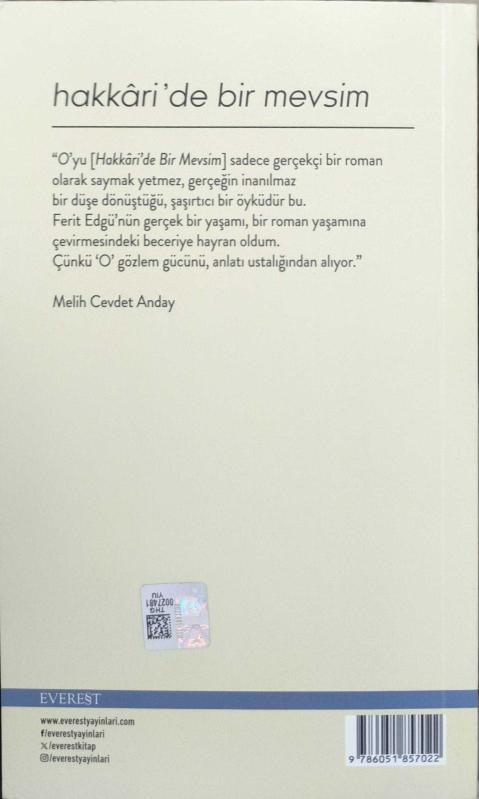 hakkâri'de bir mevsim
“O’yu [Hakkâri’de Bir Mevsim] sadece gerçekçi bir roman
olarak saymak yetmez, gerçeğin inanılmaz
bir düşe dönüştüğü, şaşırtıcı bir öyküdür bu.
Ferit Edgü’nün gerçek bir yaşamı, bir roman yaşamına
çevirmesindeki beceriye hayran oldum.
Çünkü ‘O’ gözlem gücünü, anlatı ustalığından alıyor.”
Melih Cevdet Anday
THG
0027481
YIU
EVEREST
www.everestyayinlari.com
f/everestyayinlari
X/everestkitap
/everestyayinlari
9 786051 857022